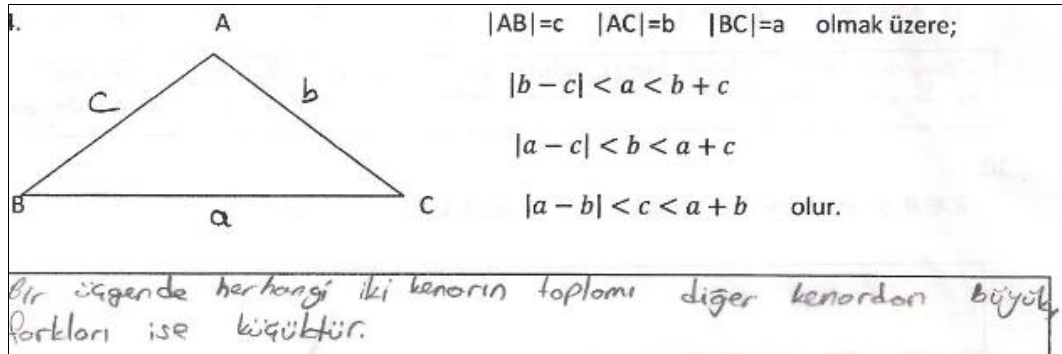 4.
A
|AB|=c |AC|=b |BC|=a olmak üzere;
c
b
|b − c| < a < b + c
|a − c| < b < a + c
B
a
C
|a − b| < c < a + b olur.
Bir üçgende herhangi iki kenarın toplamı diğer kenardan büyük,
farkları ise küçüktür.